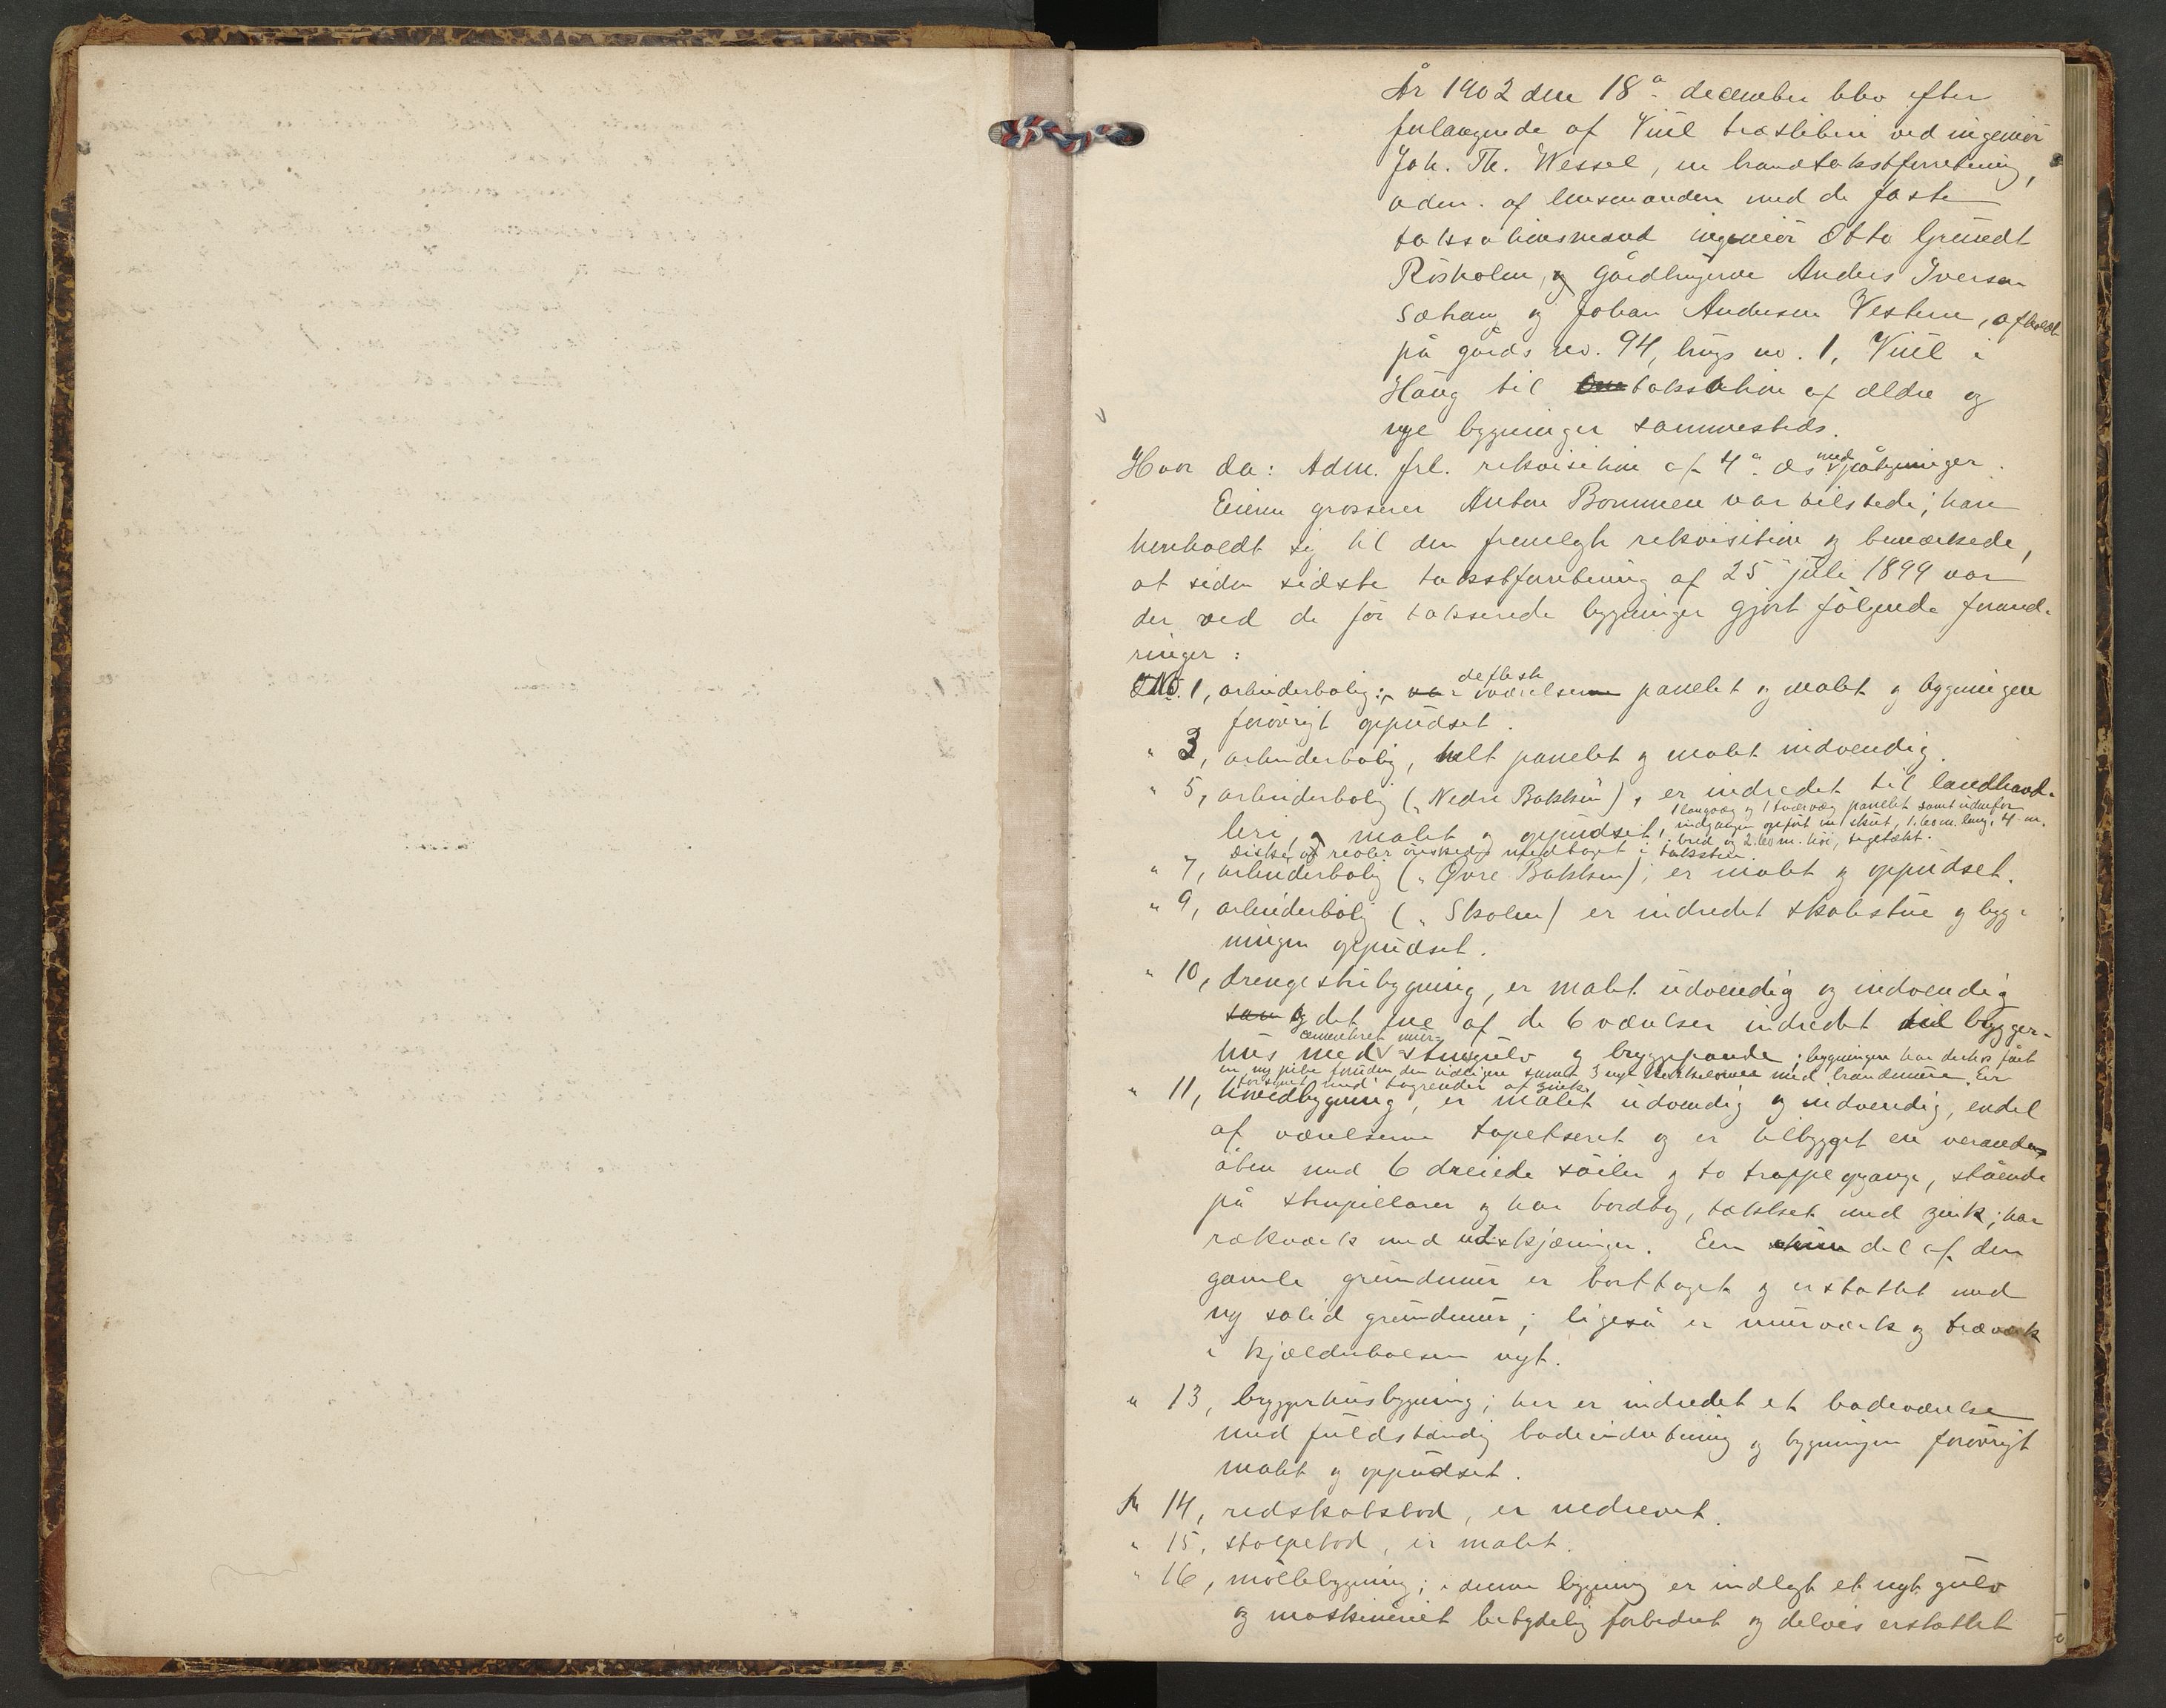 År 1902 den 18de december blev efter
forlangende af Viul træsliberi ved ingeniør
Joh. Th. Wessel, en brandtakstforretning,
adm. af lensmanden med de faste
taksationsmænd ingeniør Otto Gründt
Rösholm, og gårdbrugerne Anders Iversen
Sætrang og Johan Andersen Vestern, afholdt
på gårds no. 94, brugs no. 1, Viul i
Haug til taksation af ældre og
nye bygninger sammesteds.
Hvor da: Adm. frl. rekvisition af 4de ds med påtegninger.
Eieren grosserer Anton Bommen var tilstede; han
henholdt sig til den fremlagte rekvisition og bemærkede,
at siden sidste takstforretning af 25 juli 1899 var
der ved de før takserede bygninger gjort følgende forand-
ringer:
No. 1, arbeiderbolig; de fleste værelser panelet og malet og bygningen
forøvrigt oppudset.
" 3, arbeiderbolig, helt panelet og malet indvendig.
" 5, arbeiderbolig ("Nedre Bakken"), er indredet til landhand-
1 langvæg og 1 tværvæg panelet samt udenfor
leri, malet og oppudset, indgangen opført en skut, 1.60 m. lang, 4 m.
bred og 2.60 m. høi, tegltækt.
Diske og reoler ønskedes medtaget i taksten.
" 7, arbeiderbolig ("Øvre Bakken"); er malet og oppudset.
" 9, arbeiderbolig ("Skolen") er indredet skolestue og byg-
ningen oppudset.
" 10, drengestubygning, er malet udvendig og indvendig
og det ene af de 6 værelser indredet til brygger-
cementeret mur-
hus med stengulv og bryggepande; bygningen har derhos fået
en ny pibe foruden den tidligere samt 3 nye med brandmure. Er
forsynet med tagrender af zink.
" 11, hovedbygning, er malet udvendig og indvendig, endel
af værelserne tapetseret og er tilbygget en veranda,
åben med 6 dreiede søiler og to trappeopgange, stående
på stenpillarer og har bordtag, tækket med zink; har
rækværk med udskjæringer. En del af den
gamle grundmur er borttaget og erstattet med
ny solid grundmur; ligeså er murværk og træværk
i kjælderhalsen nyt.
" 13, bryggerhusbygning; her er indredet et badeværelse
med fuldstændig badeindretning og bygningen forøvrigt
malet og oppudset.
" 14, redskabsbod, er nedrevet.
" 15, stolpebod, er malet.
" 16, møllebygning; i denne bygning er indlagt et nyt gulv
og maskineriet betydelig forbedret og delvis erstattet